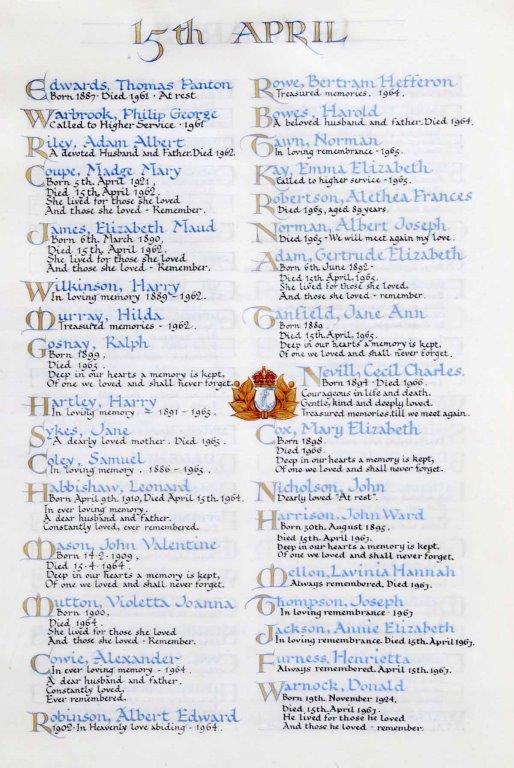 15th APRIL
Edwards, Thomas Panton
Born 1887 · Died 1961 · At rest
Warbrook, Philip George
Called to Higher Service · 1961
Riley, Adam Albert
A devoted Husband and Father. Died 1962.
Coupe, Madge Mary
Born 5th. April 1921,
Died 15th. April 1962.
She lived for those she loved
And those she loved - Remember.
James, Elizabeth Maud
Born 6th. March 1890,
Died 15th. April 1962.
She lived for those she loved
And those she loved - Remember.
Wilkinson, Harry
In loving memory 1889 - 1962.
Murray, Hilda
Treasured memories - 1962.
Gosnay, Ralph
Born 1899,
Died 1963.
Deep in our hearts a memory is kept,
Of one we loved and shall never forget.
Hartley, Harry
In loving memory - 1891 - 1963.
Sykes, Jane
A dearly loved mother. Died 1963.
Coley, Samuel
In loving memory . 1886 - 1963.
Habbishaw, Leonard
Born April 9th. 1910, Died April 15th. 1964.
In ever loving memory.
A dear husband and father.
Constantly loved, ever remembered.
Mason, John Valentine
Born 14 · 2 · 1909,
Died 15 · 4 · 1964.
Deep in our hearts a memory is kept,
Of one we loved and shall never forget.
Mutton, Violetta Joanna
Born 1900,
Died 1964.
She lived for those she loved
And those she loved - Remember.
Cowie, Alexander
In ever loving memory - 1964.
A dear husband and father.
Constantly loved,
Ever remembered.
Robinson, Albert Edward
1902 · In Heavenly love abiding - 1964.
Rowe, Bertram Hefferon
Treasured memories. 1964.
Bowes, Harold
A beloved husband and father. Died 1964.
Tawn, Norman
In loving remembrance - 1965.
Kay, Emma Elizabeth
Called to higher service - 1965.
Robertson, Alethea Frances
Died 1965, aged 89 years.
Norman, Albert Joseph
Died 1965 - We will meet again my love.
Adam, Gertrude Elizabeth
Born 6th. June 1892 -
Died 15th April, 1965.
She lived for those she loved,
And those she loved - remember.
Canfield, Jane Ann
Born 1889.
Died 15th. April, 1965.
Deep in our hearts a memory is kept,
Of one we loved and shall never forget.
Nevill, Cecil Charles.
Born 1894 · Died 1966.
Courageous in life and death.
Gentle, kind and deeply loved.
Treasured memories, till we meet again.
Cox, Mary Elizabeth
Born 1898.
Died 1966.
Deep in our hearts a memory is kept,
Of one we loved and shall never forget.
Nicholson, John
Dearly loved "At rest".
Harrison, John Ward
Born 30th. August 1895,
Died 15th. April, 1967.
Deep in our hearts a memory is kept,
Of one we loved and shall never forget.
Mellon, Lavinia Hannah
Always remembered. Died 1967.
Thompson, Joseph
In loving remembrance · 1967
Jackson, Annie Elizabeth
In loving remembrance. Died 15th. April 1967.
Furness, Henrietta
Always remembered. April 15th. 1967.
Warnock, Donald
Born 19th. November 1924,
Died 15th. April 1967.
He lived for those he loved
And those he loved - remember.